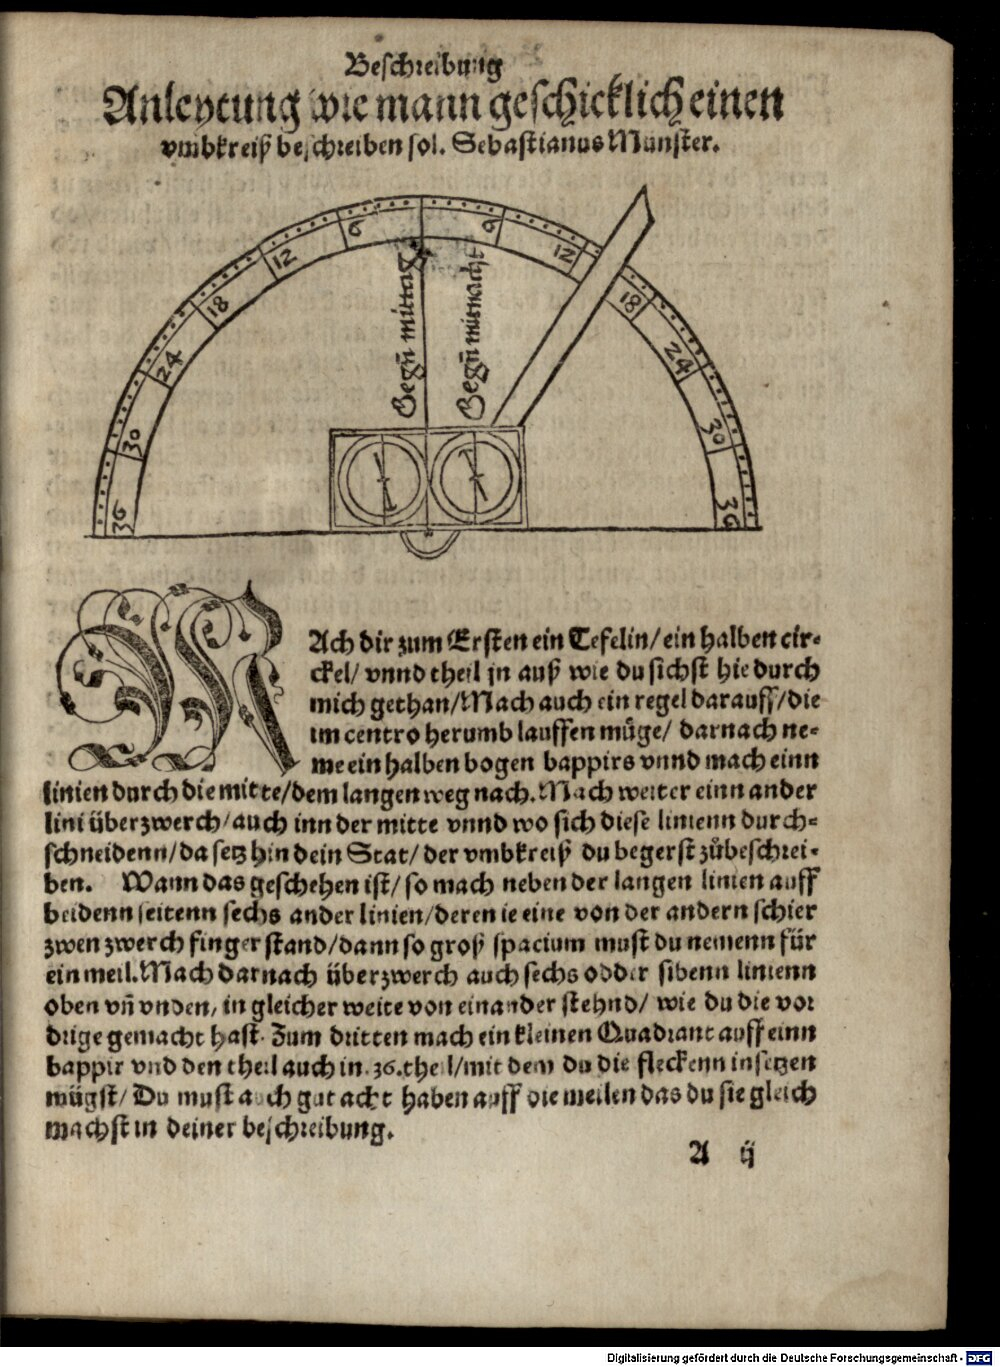 Beschreibung
Anleytung wie mann geschicklich einen
vmbkreiß beschreiben sol. Sebastianus Munster.
6
6
12
12
18
18
24
24
30
30
36
36
Gegē mittag
Gegē mitnacht
MAch dir zum Ersten ein Tefelin/ ein halben cir⸗
ckel/ vnnd theil jn auß wie du sichst hie durch
mich gethan/ Mach auch ein regel darauff/ die
im centro herumb lauffen müge/ darnach ne⸗
me ein halben bogen bappirs vnnd mach einn
linien durch die mitte/ dem langen weg nach. Mach weiter einn ander
lini überzwerch/ auch inn der mitte vnnd wo sich diese linienn durch⸗
schneidenn/ da setz hin dein Stat/ der vmbkreiß du begerst zůbeschrei⸗
ben. Wann das geschehen ist/ so mach neben der langen linien auff
beidenn seitenn sechs ander linien/ deren ie eine von der andern schier
zwen zwerch finger stand/ dann so groß spacium must du nemenn für
ein meil. Mach darnach überzwerch auch sechs odder sibenn linienn
oben vñ vnden, in gleicher weite von einander stehnd/ wie du die vor
drige gemacht hast. Zum dritten mach ein kleinen Quadrant auff einn
bappir vnd den theil auch in. 36. theil/ mit dem du die fleckenn insetzen
mügst/ Du must auch gut acht haben auff die meilen das du sie gleich
machst in deiner beschreibung.
A ij
Digitalisierung gefördert durch die Deutsche Forschungsgemeinschaft - DFG